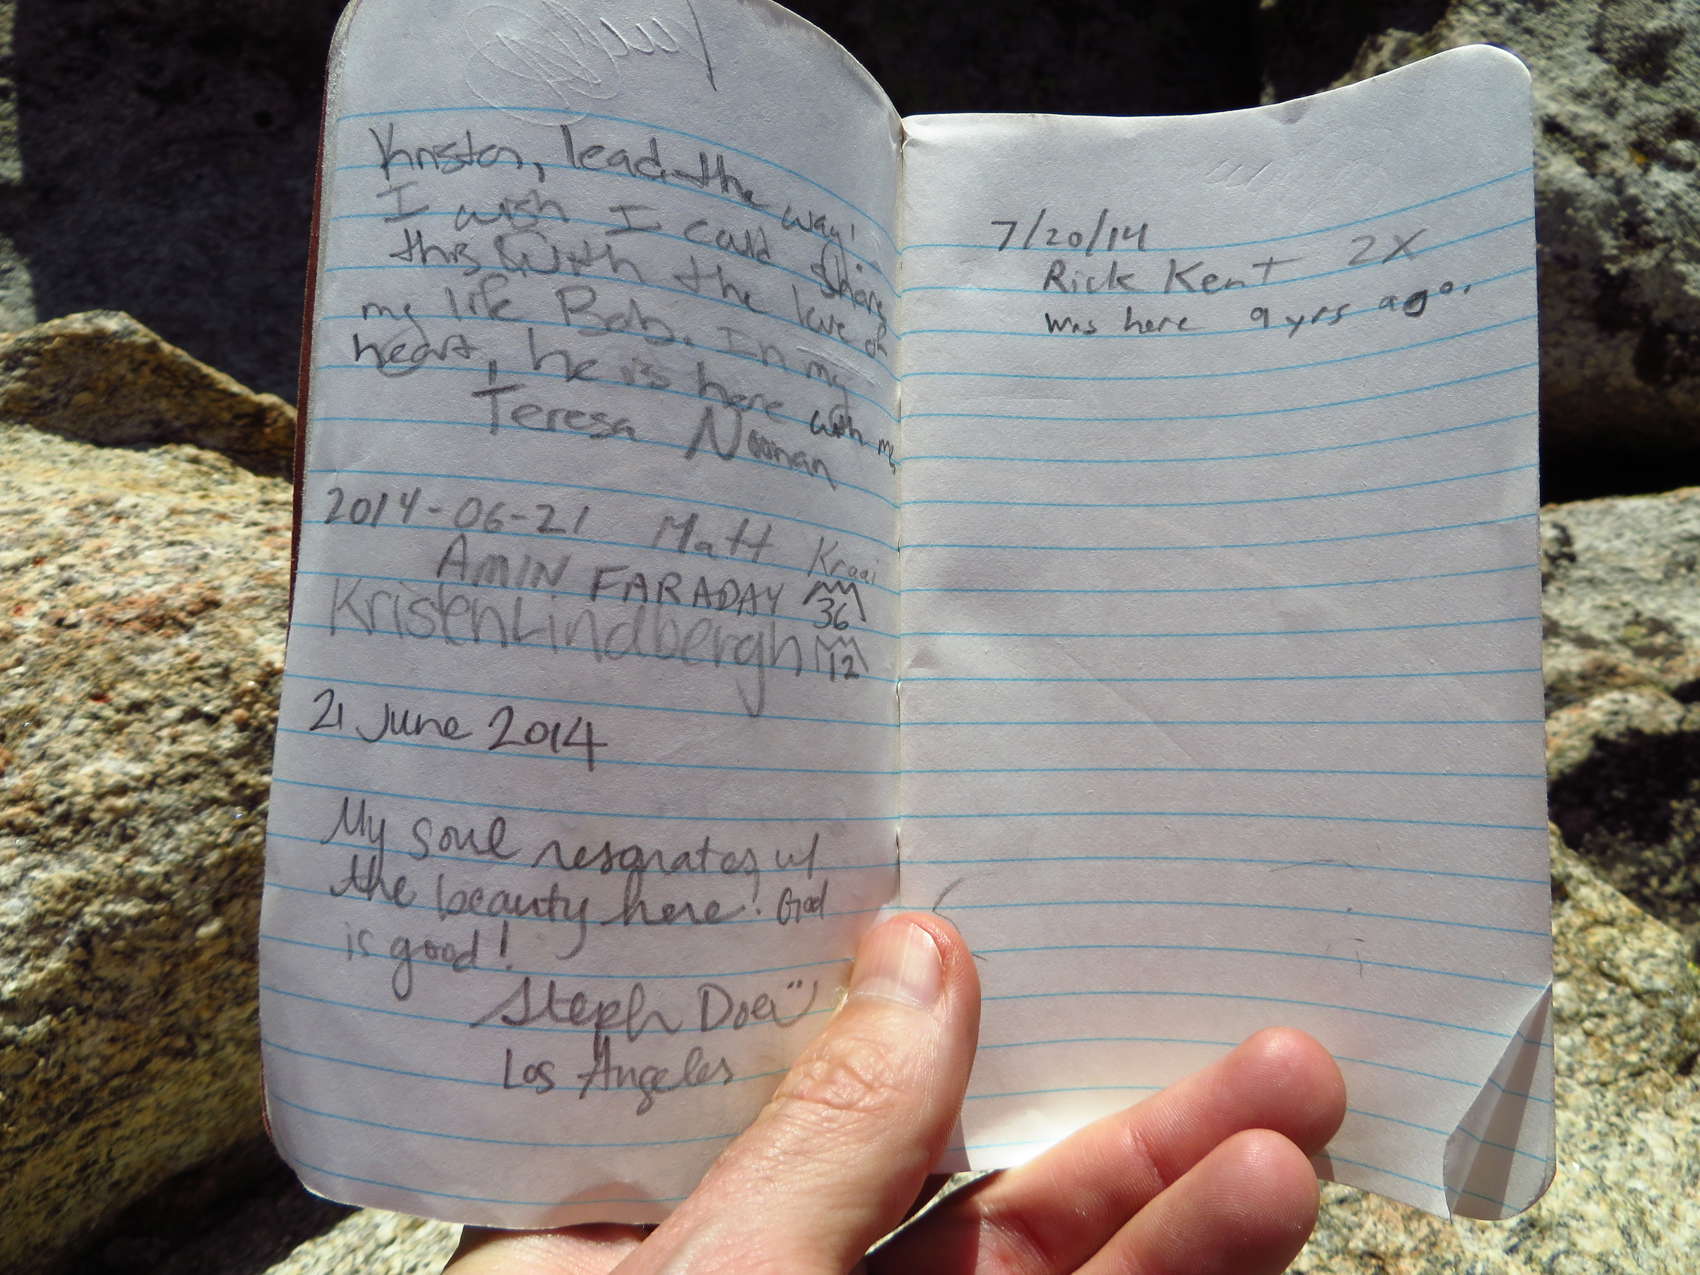 Kristen, lead the way!
I wish I could share
this with the love of
my life Bob. In my
heart, he is here with me,
Teresa Noonan
2014-06-21 Matt Kraai
AMIN FARADAY 36
Kristen Lindbergh 12
21 June 2014
My soul resonates w/
the beauty here! God
is good!
Steph
Los Angeles
7/20/14
Rick Kent 2X
was here 9 yrs ago.